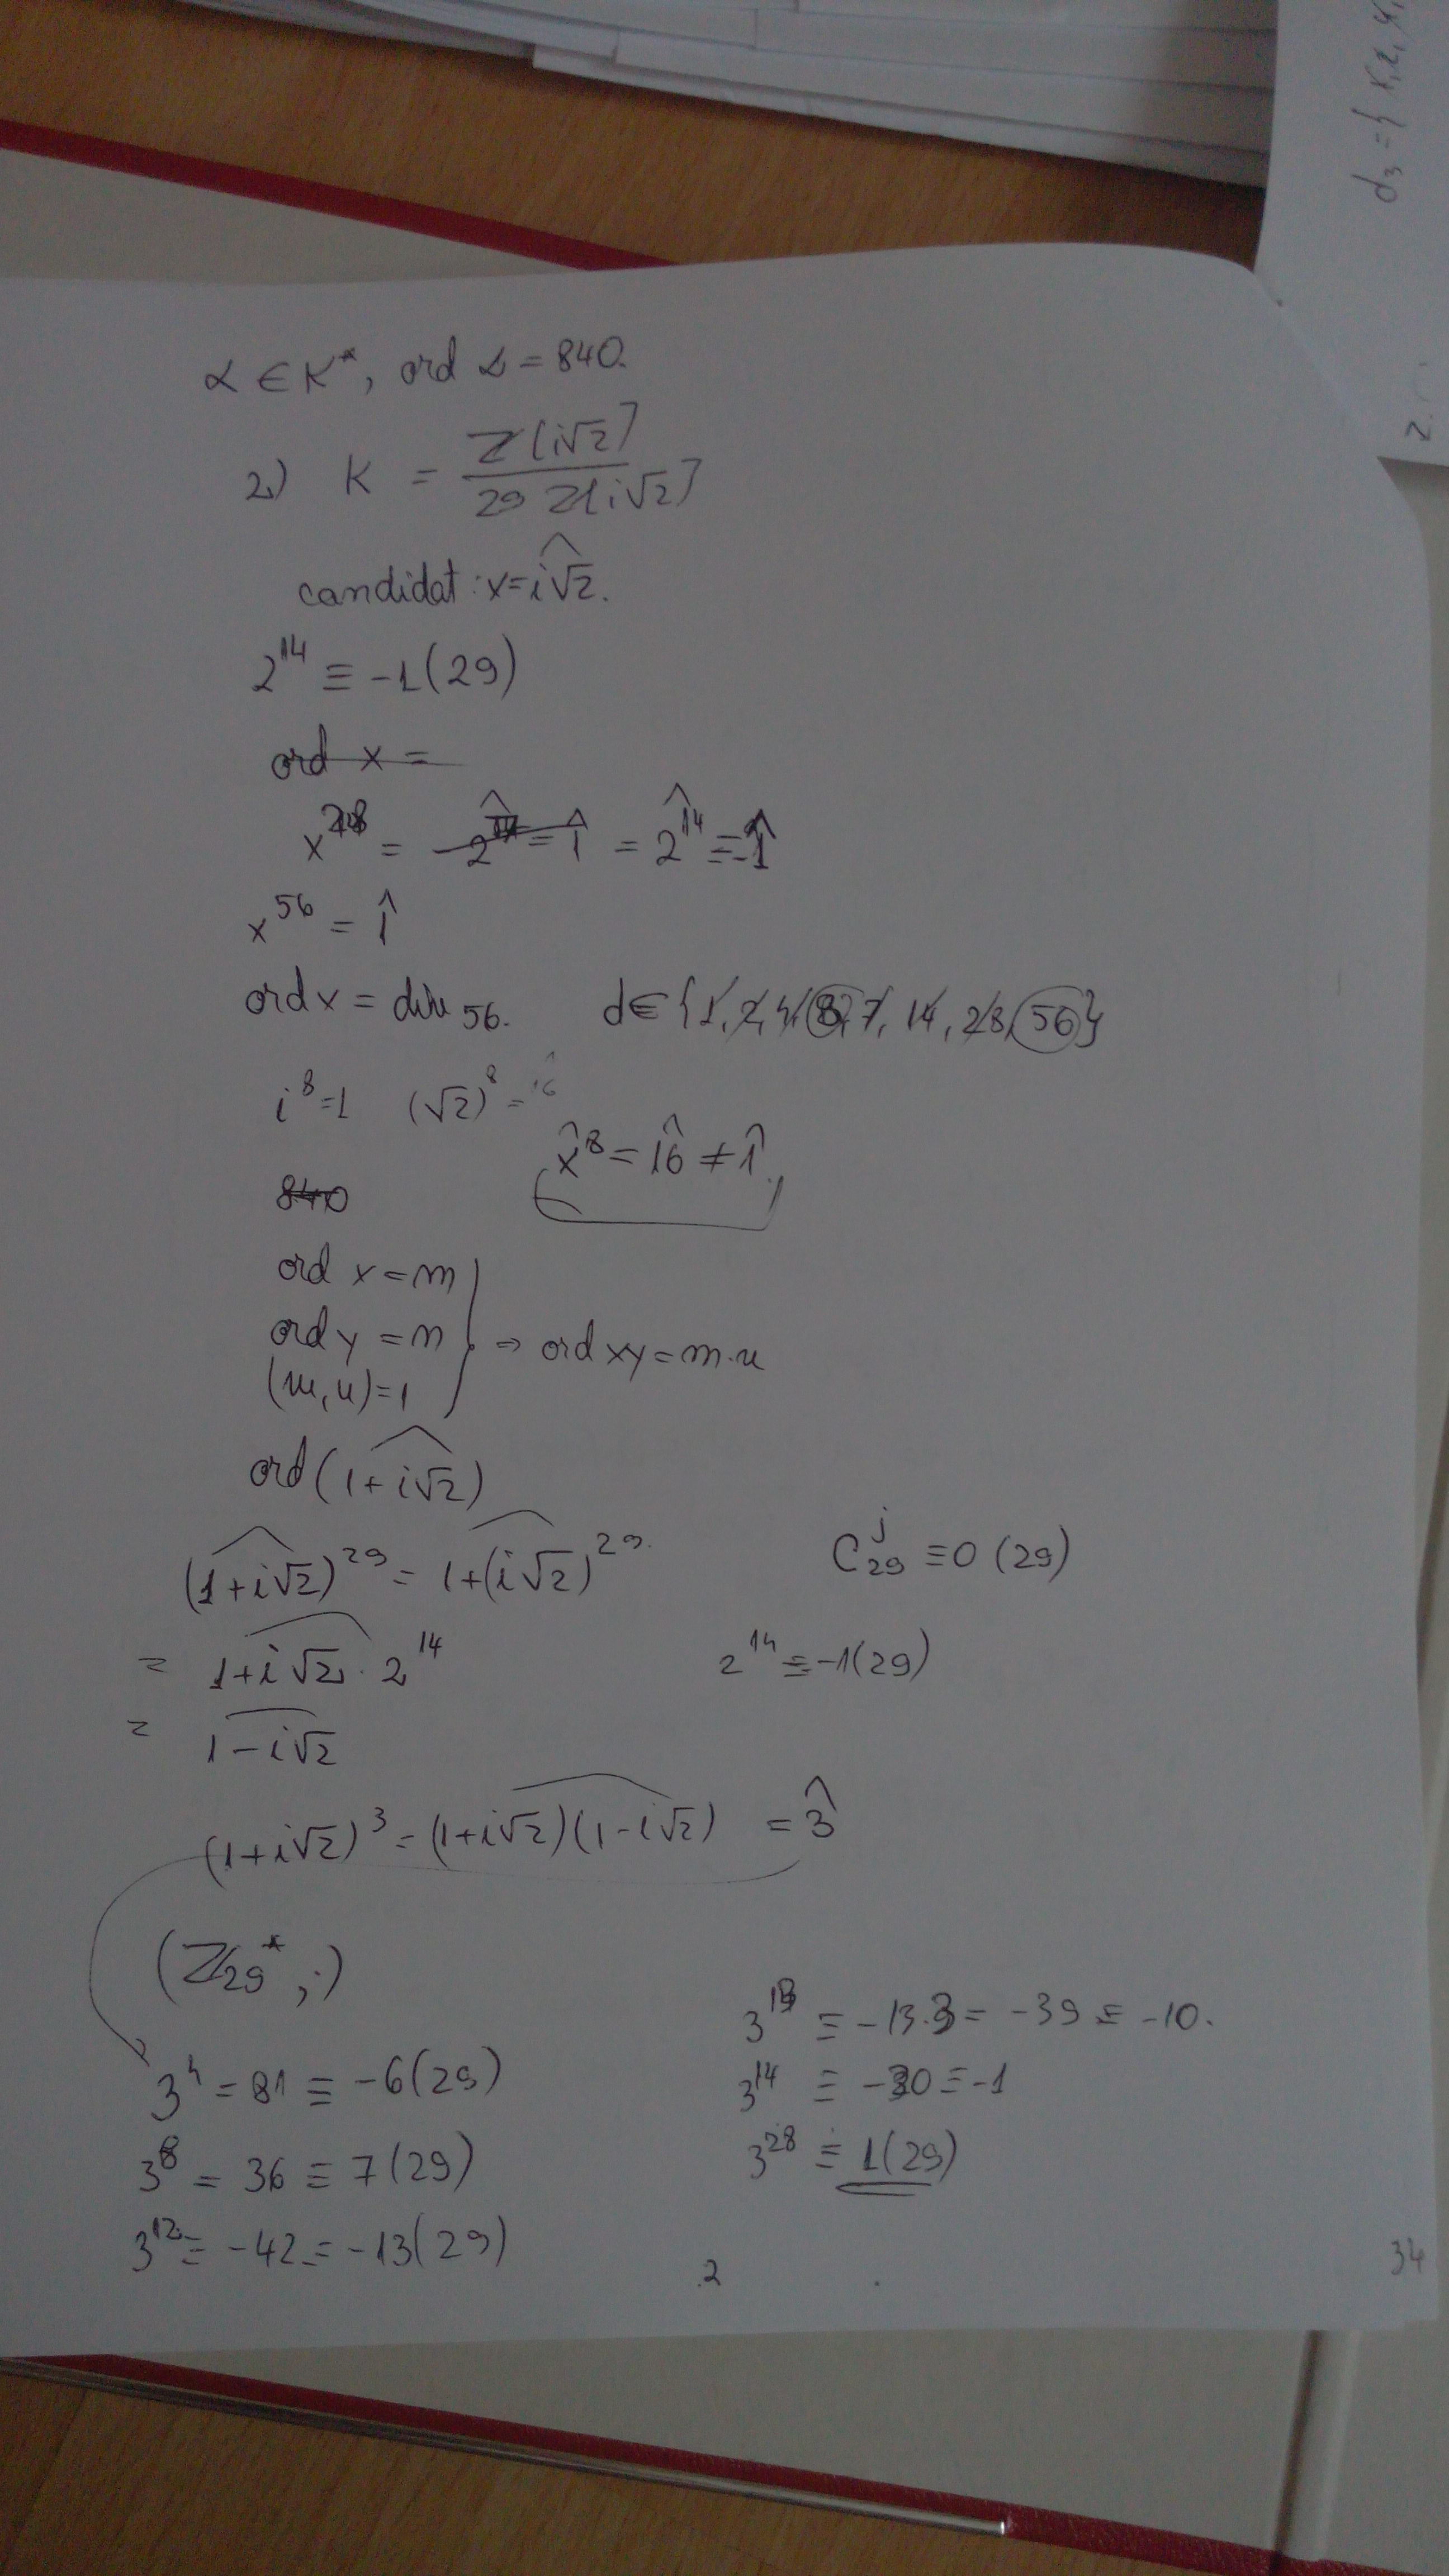 α ∈ K*, ord α = 840.
2) K = Z[i√2] / 29 Z[i√2]
candidat: x = i√2^.
2^14 ≡ -1 (29)
ord x =
x^28 = -2^14 = 1̂ = 2̂^14 ≡ -1̂
x^56 = 1̂
ord x = div 56. d ∈ {1, 2, 4, 8, 7, 14, 28, 56}
i^8 = 1 (√2)^8 = 16
x̂^8 = 1̂6 ≠ 1̂
840
ord x = m
ord y = n
(m, n) = 1
⇒ ord xy = m·n
ord (1+i√2)
(1+i√2)^29 = 1+(i√2)^29. C_29^j ≡ 0 (29)
= 1+i√2 · 2^14 2^14 ≡ -1 (29)
= 1-i√2
(1+i√2)^3 = (1+i√2)(1-i√2) = 3̂
(Z_29*, ·)
3^4 = 81 ≡ -6 (29)
3^8 = 36 ≡ 7 (29)
3^12 ≡ -42 = -13 (29)
3^13 ≡ -13·3 = -39 ≡ -10.
3^14 ≡ -30 ≡ -1
3^28 ≡ 1 (29)
2
34
d_3 = {1, 2, 4,
2.